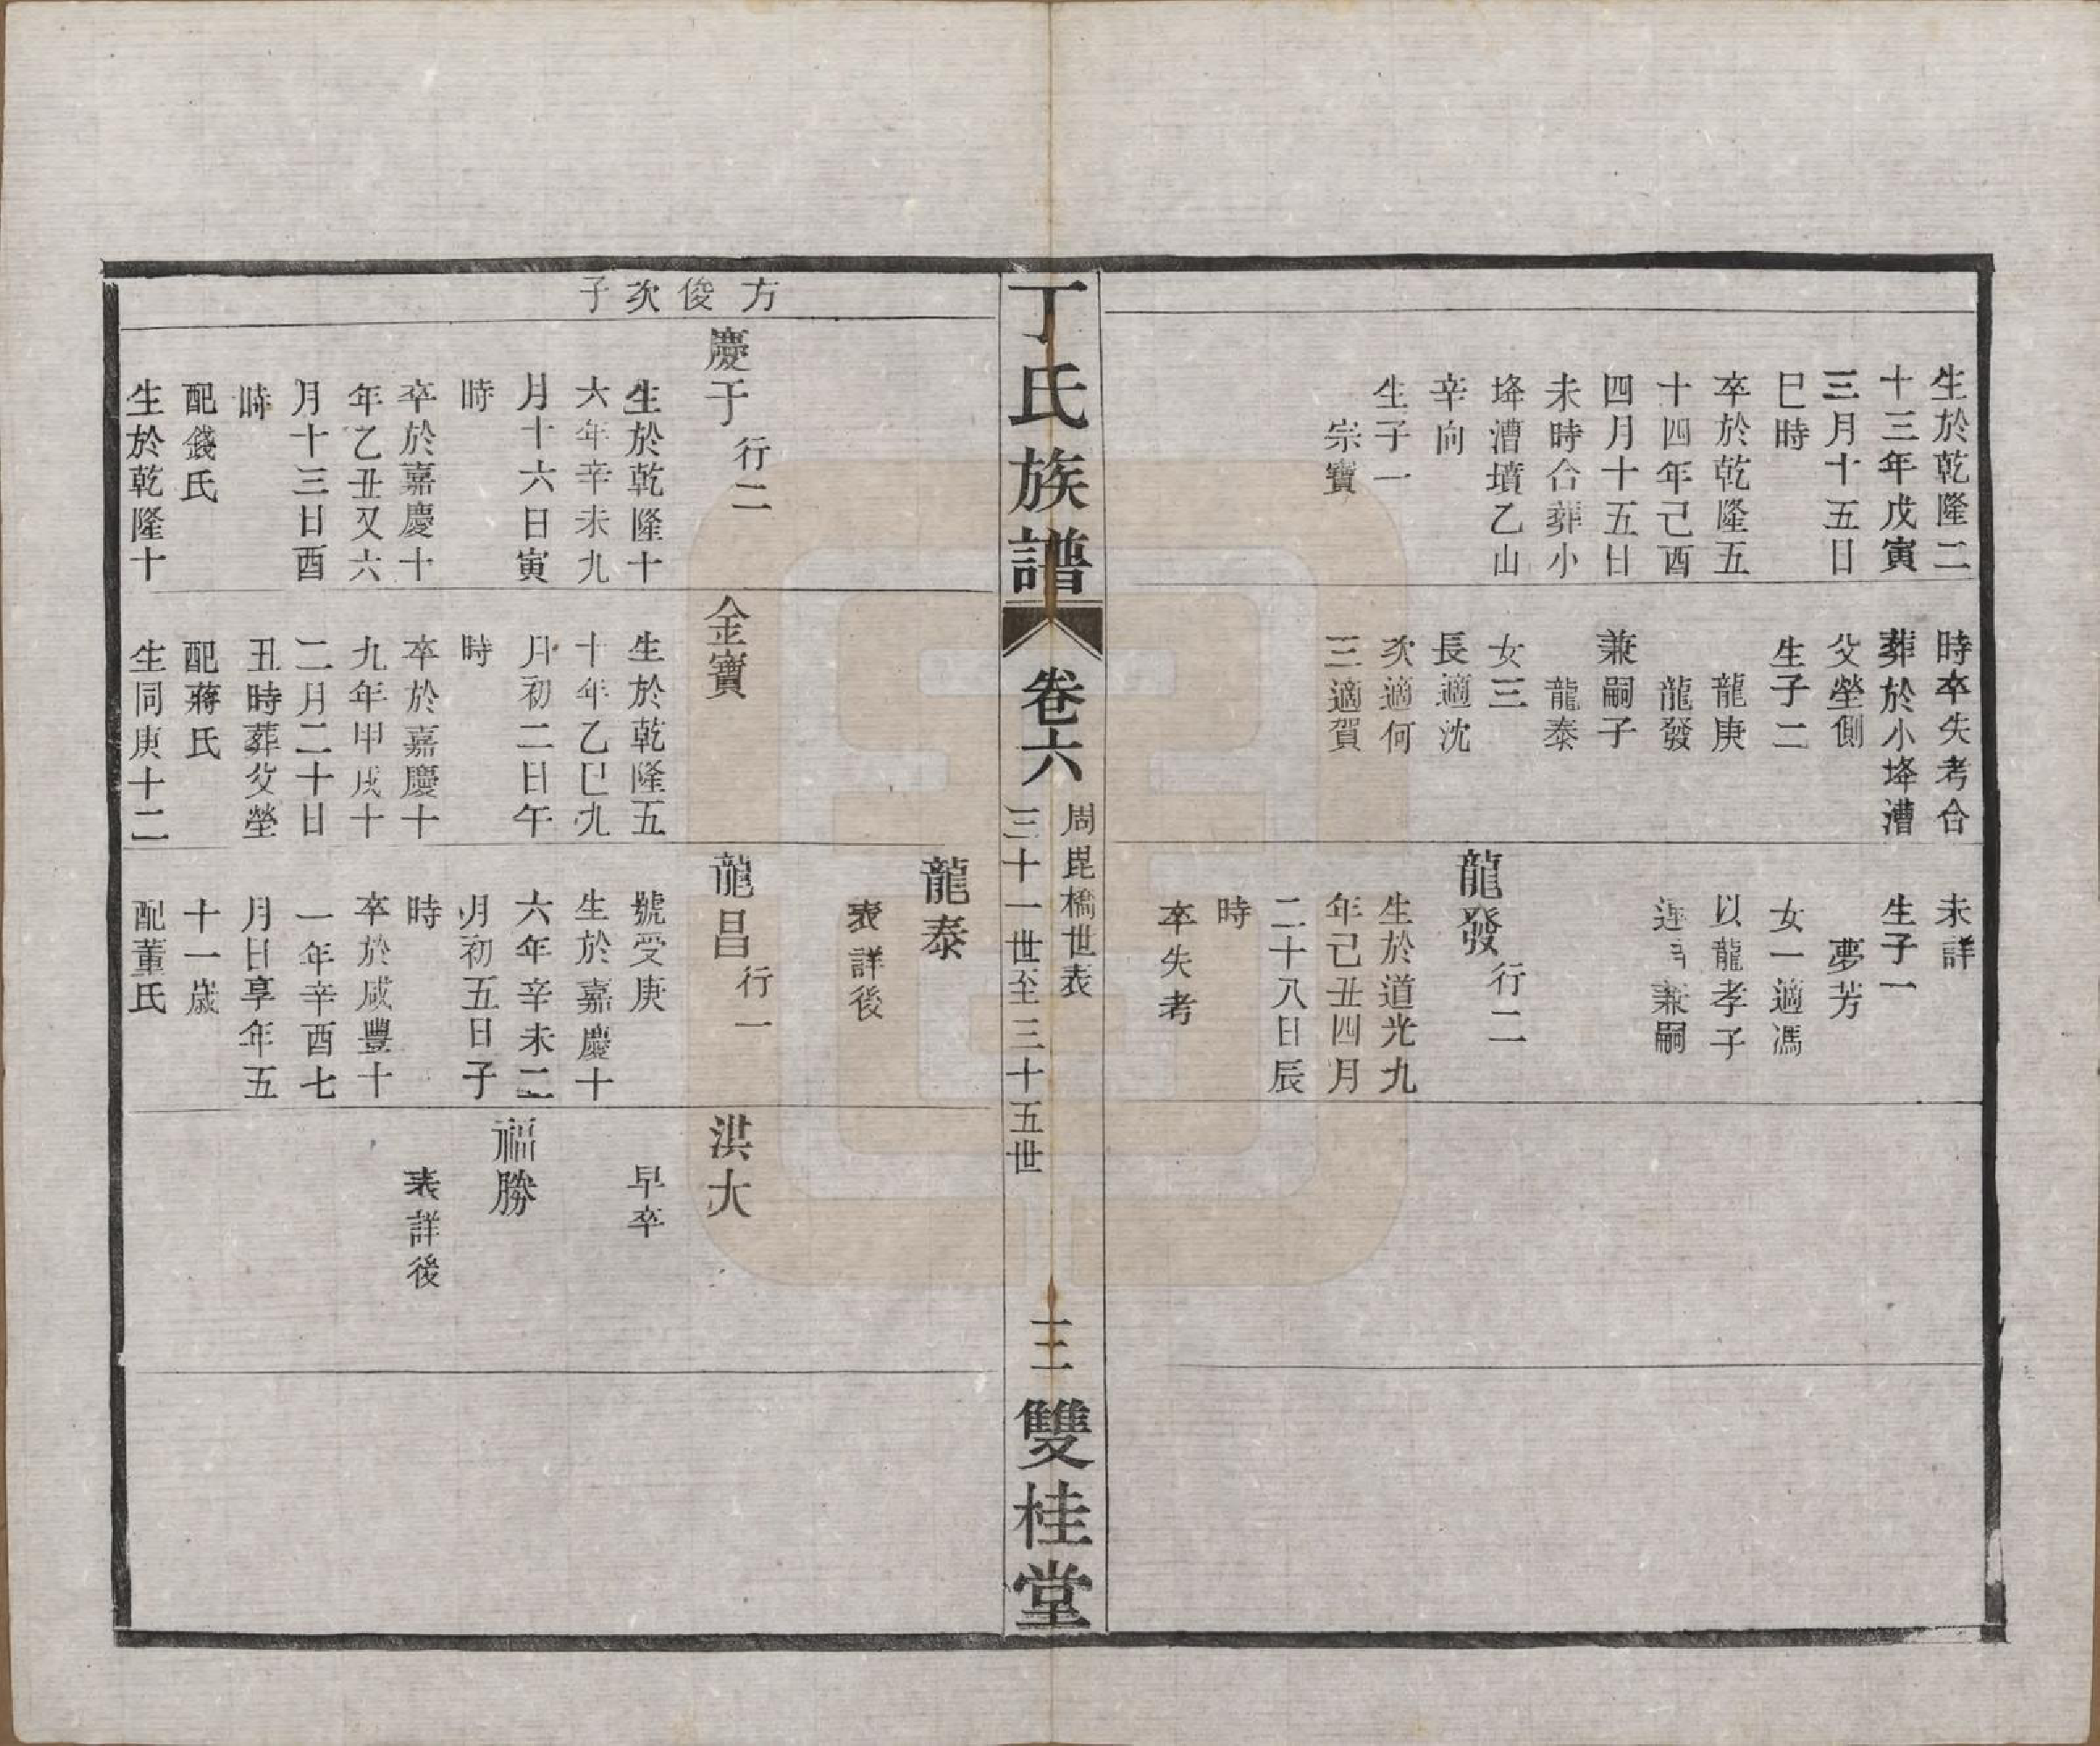 生於乾隆二
十三年戊寅
三月十五日
巳時
卒於乾隆五
十四年己酉
四月十五日
未時合葬小
垶漕墳乙山
辛向
生子一
宗寶
時卒失考合
葬於小垶漕
父塋側
生子二
龍庚
龍發
兼嗣子
龍泰
女三
長適沈
次適何
三適賀
未詳
生子一
夢芳
女一適馮
以龍孝子
兼嗣
龍發行二
生於道光九
年己丑四月
二十八日辰
時
卒失考
丁氏族譜
卷六
周毘橋世表
三十一世至三十五世
三
雙桂堂
龍泰
表詳後
方俊次子
慶于行二
生於乾隆十
六年辛未九
月十六日寅
時
卒於嘉慶十
年乙丑又六
月十三日酉
時
配錢氏
生於乾隆十
金寶
生於乾隆五
十年乙巳九
月初二日午
時
卒於嘉慶十
九年甲戌十
二月二十日
丑時葬父塋
配蔣氏
生同庚十二
龍昌行一
號受庚
生於嘉慶十
六年辛未二
月初五日子
時
卒於咸豐十
一年辛酉七
月日享年五
十一歲
配董氏
洪大
早卒
福勝
表詳後